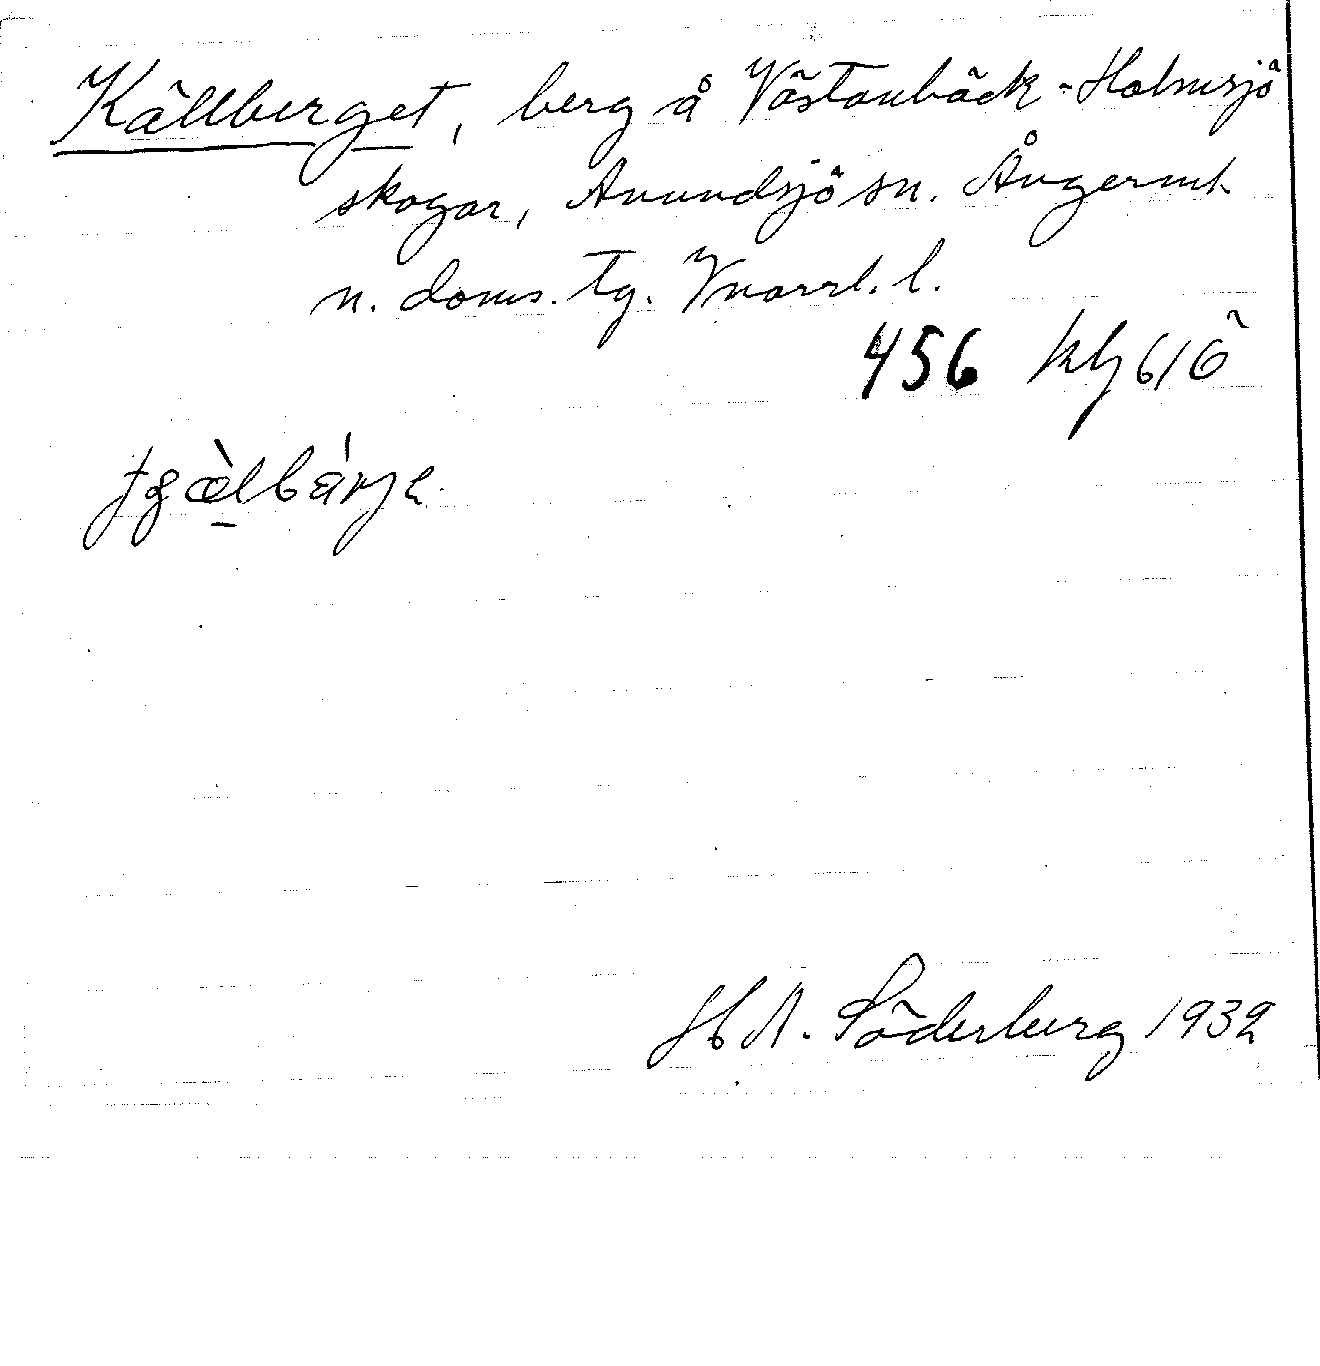 Källberget, berg å Västanbäck-Holmsjö
skogar, Anundsjö sn. Ångerml.
n. doms. tg. Vnorrl. l.
456 kbl 61ö
H A. Söderberg 1932